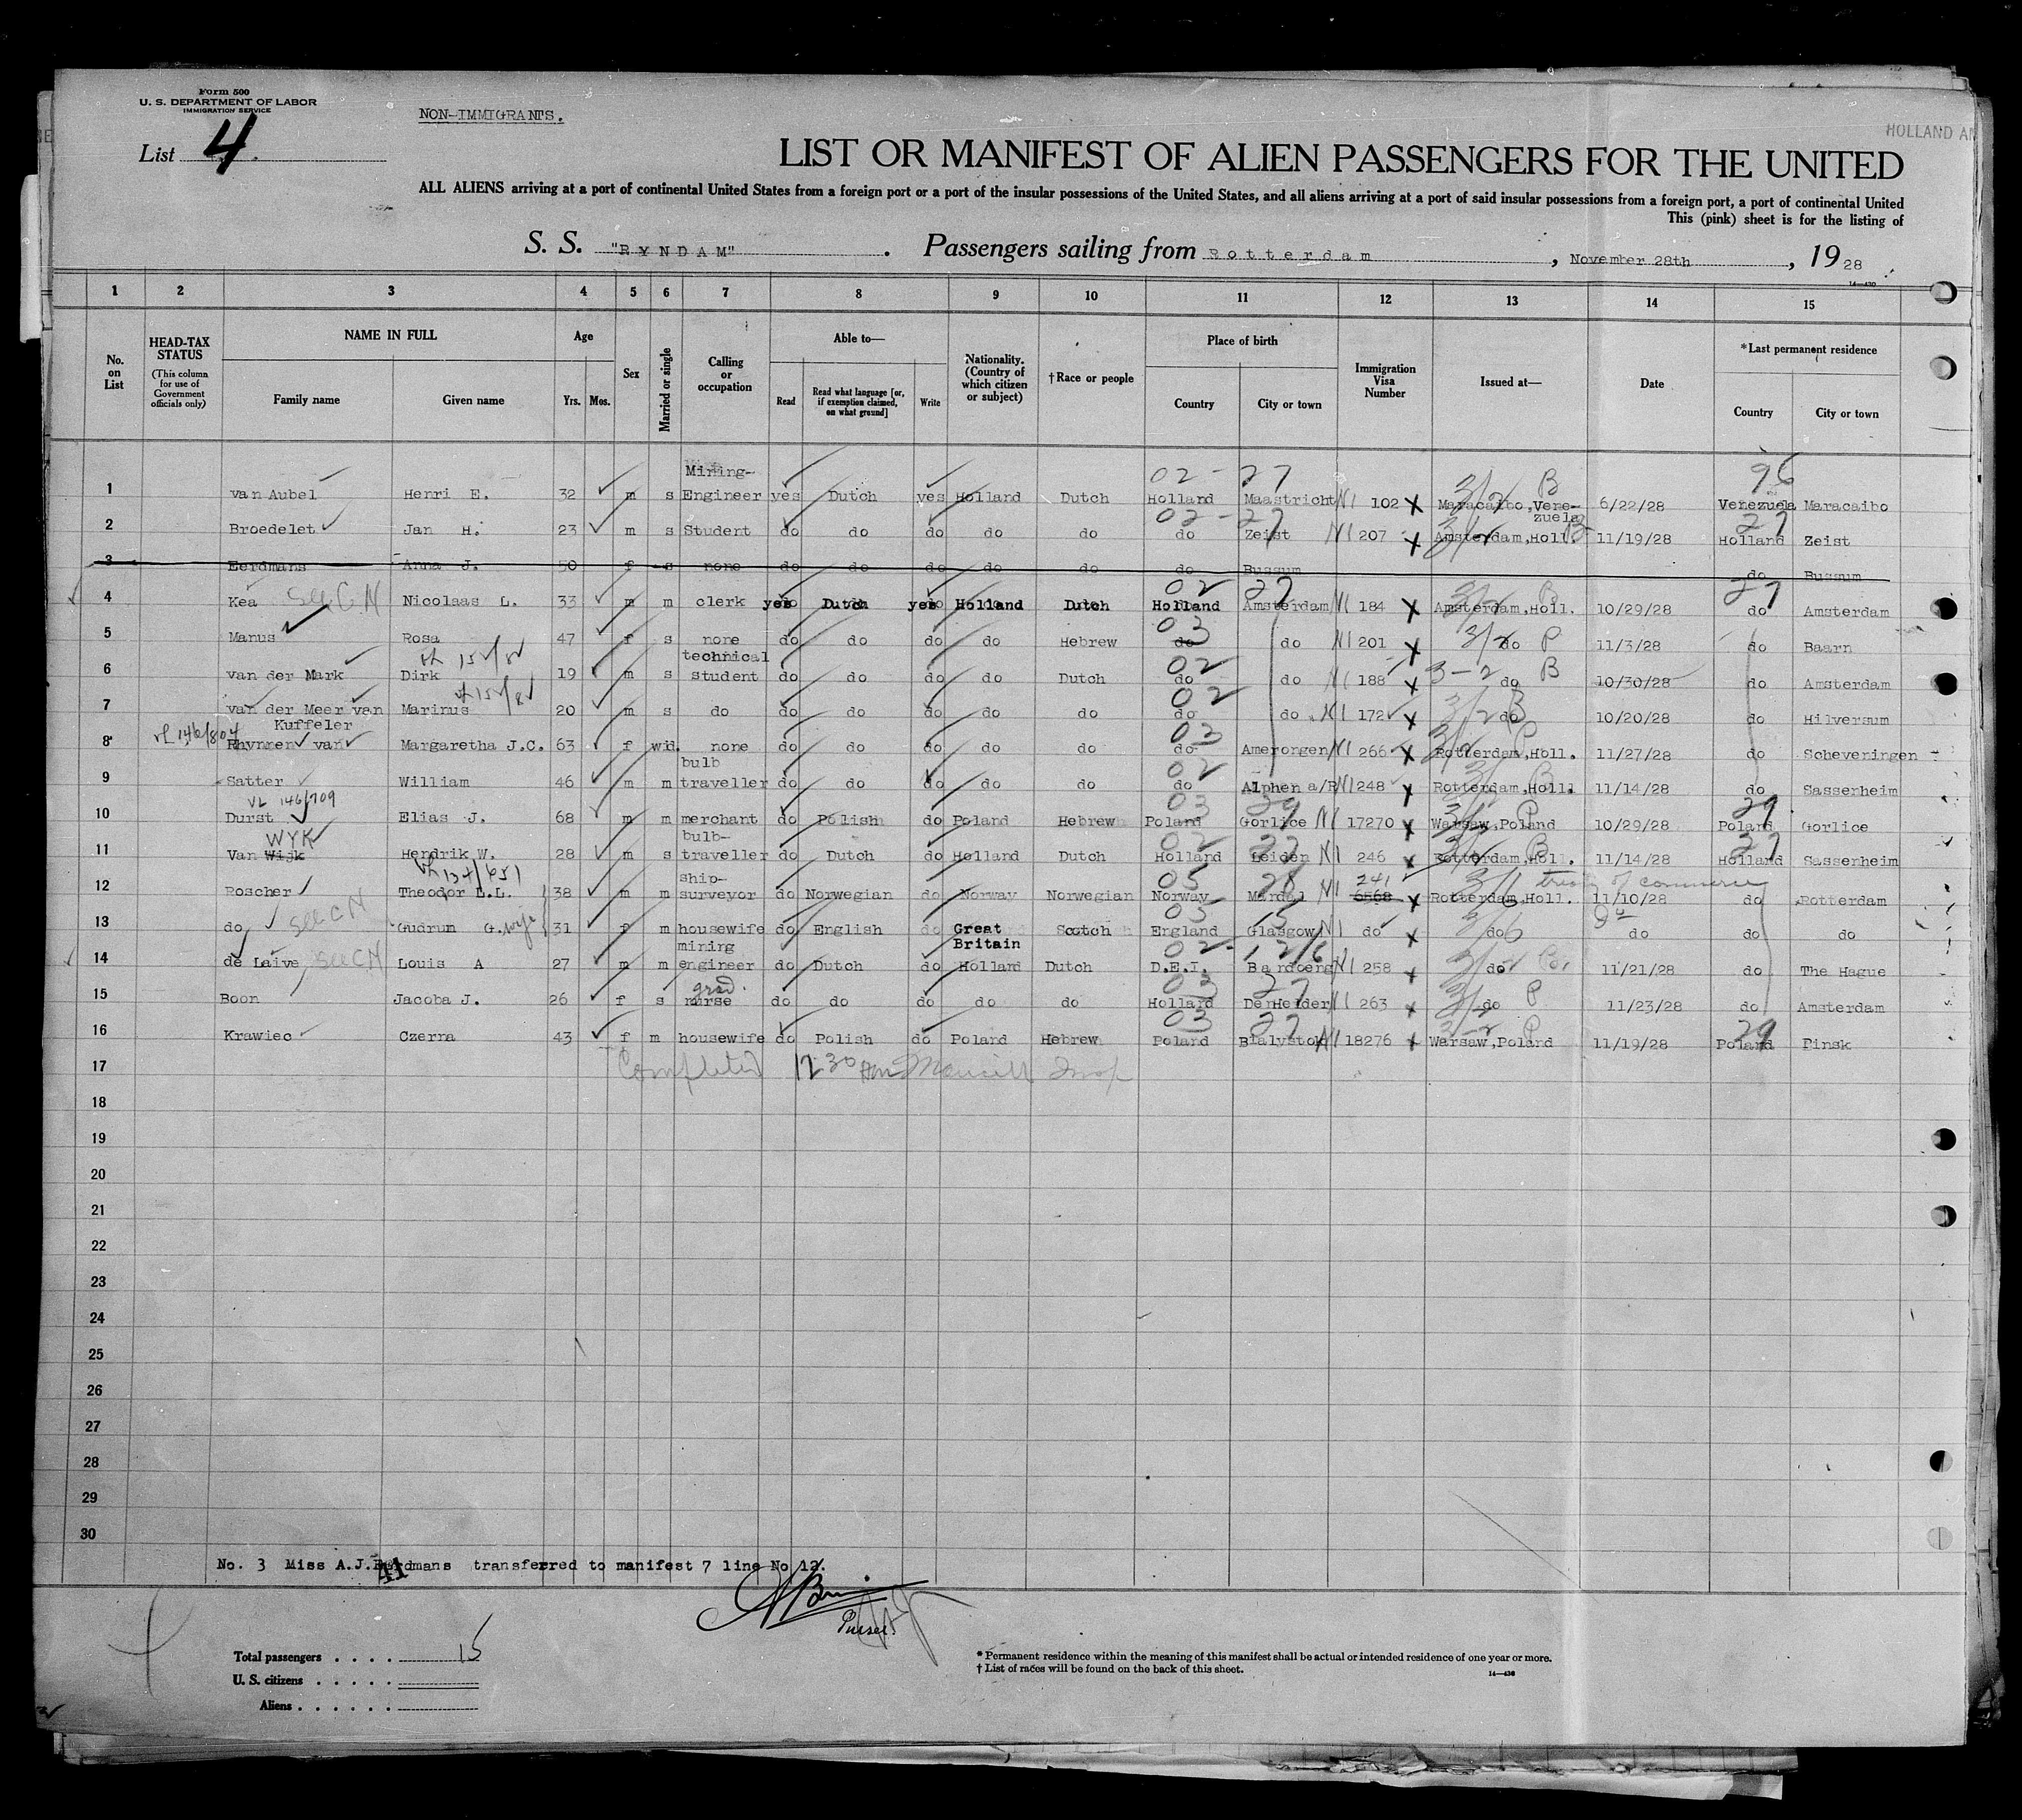 Form 500
U. S. DEPARTMENT OF LABOR
IMMIGRATION SERVICE
NON-IMMIGRANTS.
HOLLAND AM
List 4
LIST OR MANIFEST OF ALIEN PASSENGERS FOR THE UNITED
ALL ALIENS arriving at a port of continental United States from a foreign port or a port of the insular possessions of the United States, and all aliens arriving at a port of said insular possessions from a foreign port, a port of continental United
This (pink) sheet is for the listing of
S. S. "RYNDAM". Passengers sailing from Rotterdam, November 28th, 1928
14-430
1 2 3 4 5 6 7 8 9 10 11 12 13 14 15
No. on List
HEAD-TAX STATUS (This column for use of Government officials only)
NAME IN FULL Family name Given name
Age Yrs. Mos.
Sex
Married or single
Calling or occupation
Able to— Read Read what language [or, if exemption claimed, on what ground] Write
Nationality. (Country of which citizen or subject)
†Race or people
Place of birth Country City or town
Immigration Visa Number
Issued at—
Date
*Last permanent residence Country City or town
02-27 3/2 B 96
1 van Aubel Henri E. 32 m s Mining-Engineer yes Dutch yes Holland Dutch Holland Maastricht N1 102 X Maracaibo,Venezuela 6/22/28 Venezuela Maracaibo
02-27 3/2 B 27
2 Broedelet Jan H. 23 m s Student do do do do do do Zeist N1 207 X Amsterdam,Holl. 11/19/28 Holland Zeist
3 Eerdmans Anna J. 50 f s none do do do do do do Bussum do Bussum
02 27 3/2 B 27
4 Kea See C N Nicolaas L. 33 m m clerk yes Dutch yes Holland Dutch Holland Amsterdam N1 184 X Amsterdam,Holl. 10/29/28 do Amsterdam
03 3/2 P
5 Manus Rosa 47 f s none do do do do Hebrew do do N1 201 X do 11/3/28 do Baarn
02 3-2 B
6 van der Mark Dirk 19 m s technical student do do do do Dutch do do N1 188 X do 10/30/28 do Amsterdam
02 3/2 B
7 van der Meer van Kuffeler Marinus 20 m s do do do do do do do do N1 172 X do 10/20/28 do Hilversum
vL 146/804 03 3/2 P
8 Rhynnen van Margaretha J.C. 63 f wid. none do do do do do do Amerongen N1 266 X Rotterdam,Holl. 11/27/28 do Scheveningen
02 3/ B
9 Satter William 46 m m bulb traveller do do do do do do Alphen a/R N1 248 X Rotterdam,Holl. 11/14/28 do Sassenheim
VL 146/709 03 29 P 29
10 Durst Elias J. 68 m m merchant do Polish do Poland Hebrew Poland Gorlice N1 17270 X Warsaw,Poland 10/29/28 Poland Gorlice
WYK 02 27 B 27
11 Van Wijk Hendrik W. 28 m s bulb-traveller do Dutch do Holland Dutch Holland Leiden N1 246 X Rotterdam,Holl. 11/14/28 Holland Sassenheim
05 28 241 treaty of commerce
12 Roscher Theodor L.L. 38 m m ship-surveyor do Norwegian do Norway Norwegian Norway Mandal N1 6568 X Rotterdam,Holl. 11/10/28 do Rotterdam
See C N wife 3/6
13 do Gudrun G. 31 f m housewife do English do Great Britain Scotch England Glasgow N1 do X do do do do
02
14 de Laive See C N Louis A 27 m m mining engineer do Dutch do Holland Dutch D.E.I. Bandoeng N1 258 X do 11/21/28 do The Hague
grad. 03 27 P
15 Boon Jacoba J. 26 f s nurse do do do do do Holland DenHelder N1 263 X do 11/23/28 do Amsterdam
03 27 3-2 P 29
16 Krawiec Czerna 43 f m housewife do Polish do Poland Hebrew Poland Bialystok N1 18276 X Warsaw,Poland 11/19/28 Poland Pinsk
17 Completed 12 30 Insp
18
19
20
21
22
23
24
25
26
27
28
29
30
No. 3 Miss A.J.Eerdmans transferred to manifest 7 line No 12.
41
Purser.
Total passengers . . . . 15
U. S. citizens . . . . .
Aliens . . . . . .
* Permanent residence within the meaning of this manifest shall be actual or intended residence of one year or more.
† List of races will be found on the back of this sheet.
14-430